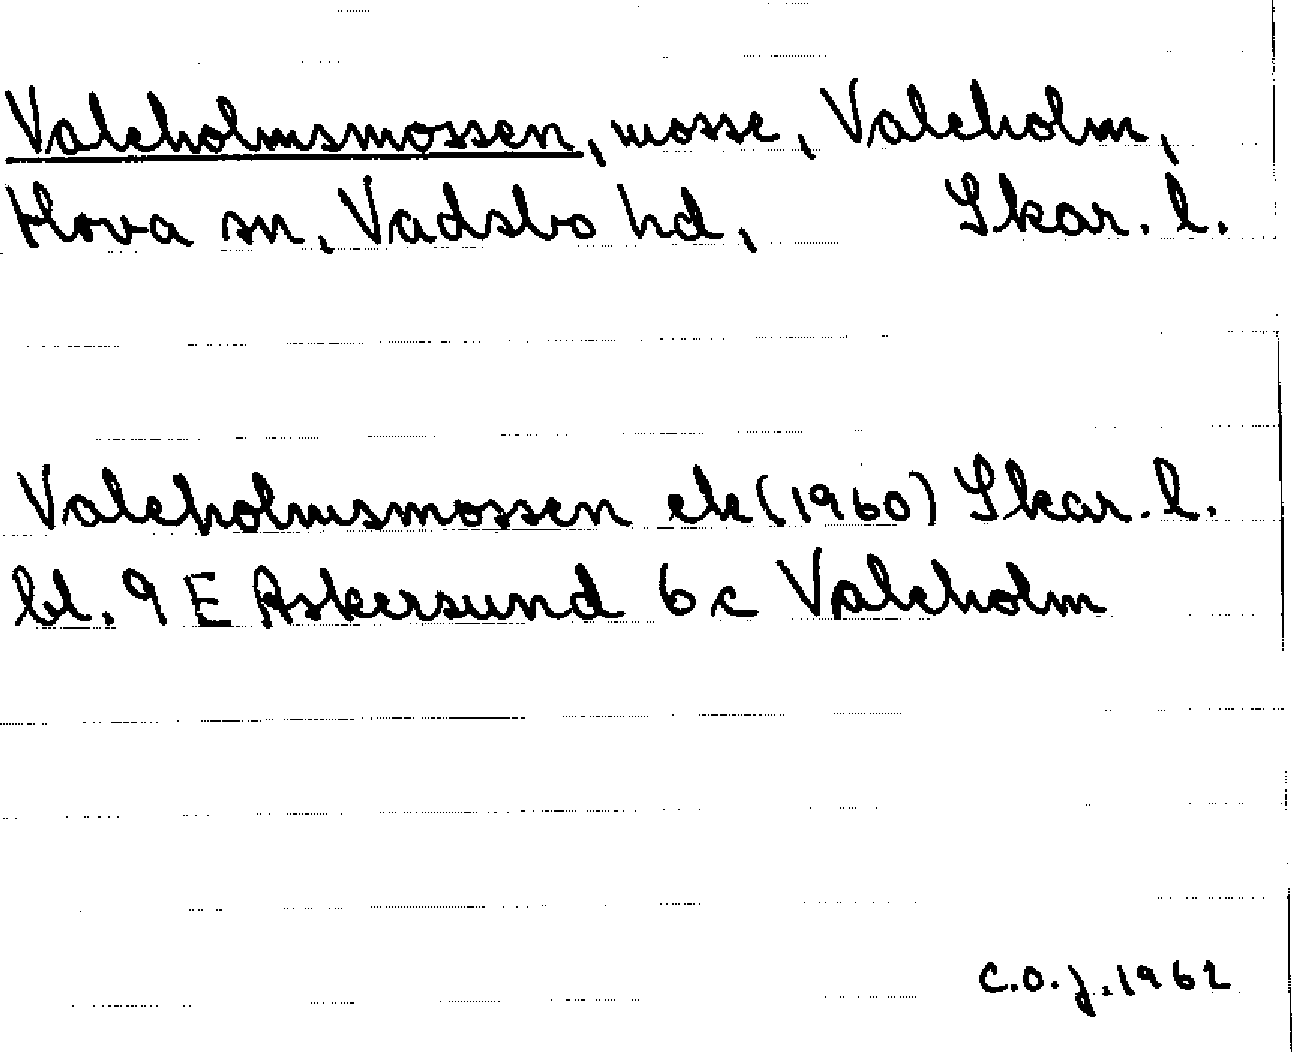 Valeholmsmossen, mosse, Valeholm,
Hova sn, Vadsbo hd, Skar. l.
Valeholmsmossen ek (1960) Skar. l.
bl. 9 E Askersund 6 c Valeholm
C.O.J. 1962